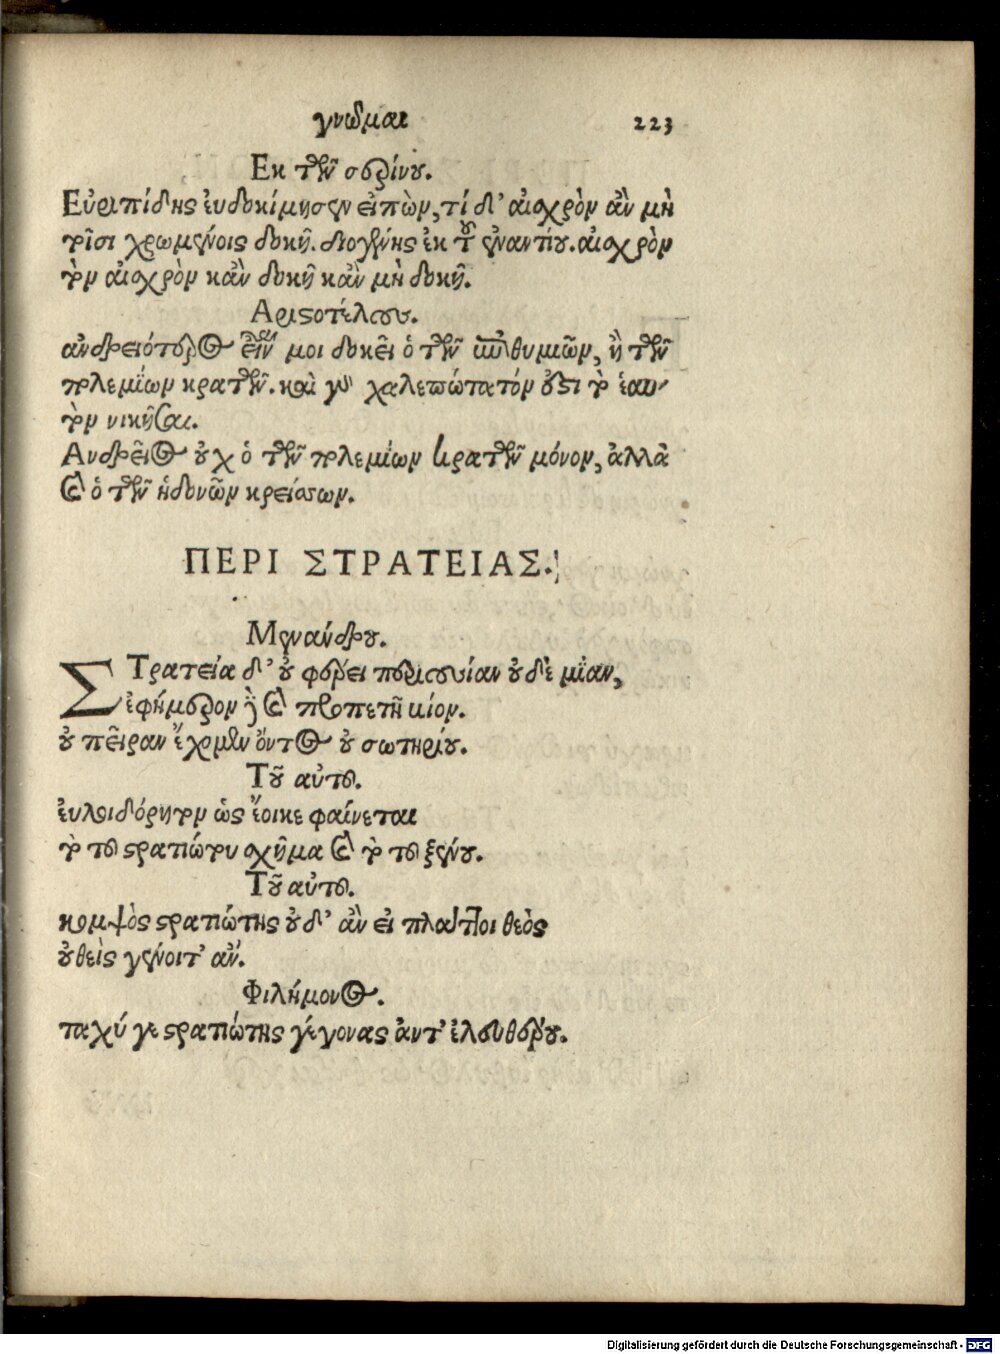 γνῶμαι 223
Εκ τῶν σερίνου.
Εὐριπίδης ἐυδοκίμησεν ἐιπὼν, τί δ’ ἀισχρὸν ἂν μὴ
τοῖσι χρωμένοις δοκῇ. διογένης ἐκ τοῦ ἐναντίου. ἀισχρὸν
τὸν ἀισχρὸν κἂν δοκῇ κἂν μὴ δοκῇ.
Αριστοτέλους.
ἀνδρειότερος εἶναι μοι δοκεῖ ὁ τῶν ἐπιθυμιῶν, ἢ τῶν
πολεμίων κρατῶν. καὶ γὰρ χαλεπώτατόν ἐστι τὸ ἑαυ
τὸν νικῆσαι.
Ανδρεῖος ὀυχ ὁ τῶν πολεμίων κρατῶν μόνον, ἀλλὰ
καὶ ὁ τῶν ἡδονῶν κρείσσων.
ΠΕΡΙ ΣΤΡΑΤΕΙΑΣ.
Μενάνδρου.
ΣΤρατεία δ’ ὀυ φέρει περιουσίαν ὀυδὲ μίαν,
ἐφήμερον δὲ καὶ προπετῆ βίον.
ὀυ πεῖραν ἔχομεν ὄντος ὀυ σωτηρίου.
Τοῦ αὐτοῦ.
ἐυλοιδόρητον ὡς ἔοικε φαίνεται
τὸ τοῦ στρατιώτου σχῆμα καὶ τὸ τοῦ ξένου.
Τοῦ αὐτοῦ.
κομψὸς στρατιώτης ὀυδ’ ἂν ἐι πλάττοι θεὸς
ὀυθεὶς γένοιτ’ ἄν.
Φιλήμονος.
ταχύ γε στρατιώτης γέγονας ἀντ’ ἐλευθέρου.
Digitalisierung gefördert durch die Deutsche Forschungsgemeinschaft - DFG